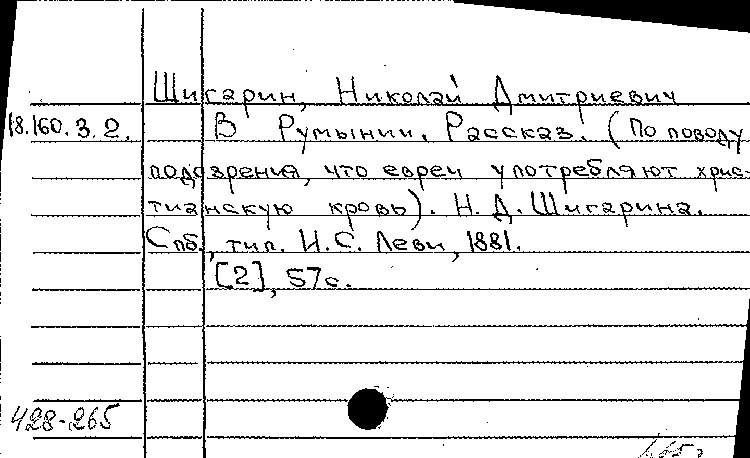 Шигарин, Николай Дмитриевич
18.160.3.2. В Румынии. Рассказ. (По поводу
подозрения, что евреи употребляют хрис-
тианскую кровь). Н. Д. Шигарина.
Спб., тип. И. С. Леви, 1881.
[2], 57с.
428-265